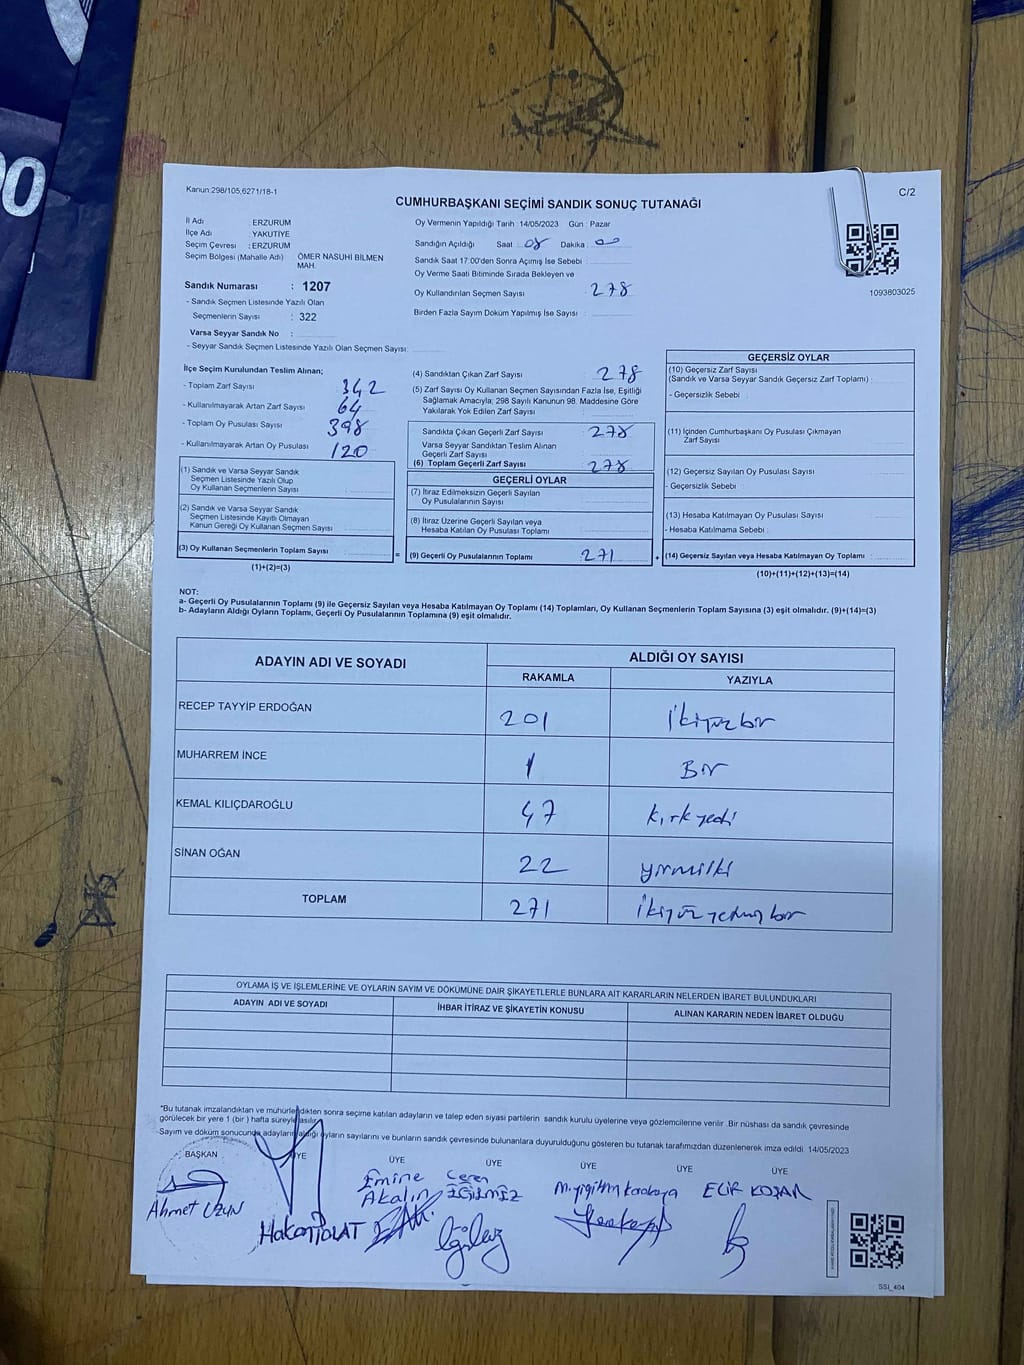 00
Kanun:298/105,6271/18-1
C/2
CUMHURBAŞKANI SEÇİMİ SANDIK SONUÇ TUTANAĞI
İl Adı ERZURUM
İlçe Adı : YAKUTİYE
Seçim Çevresi : ERZURUM
Seçim Bölgesi (Mahalle Adı) ÖMER NASUHİ BİLMEN
MAH.
Sandık Numarası : 1207
- Sandık Seçmen Listesinde Yazılı Olan
Seçmenlerin Sayısı : 322
Varsa Seyyar Sandık No :
- Seyyar Sandık Seçmen Listesinde Yazılı Olan Seçmen Sayısı:
Oy Vermenin Yapıldığı Tarih :14/05/2023 Gün : Pazar
Sandığın Açıldığı Saat : 08 Dakika : 00
Sandık Saat 17:00'den Sonra Açılmış İse Sebebi :
Oy Verme Saati Bitiminde Sırada Bekleyen ve
Oy Kullandırılan Seçmen Sayısı : 278
Birden Fazla Sayım Döküm Yapılmış İse Sayısı :
1093803025
İlçe Seçim Kurulundan Teslim Alınan;
- Toplam Zarf Sayısı : 342
- Kullanılmayarak Artan Zarf Sayısı : 64
- Toplam Oy Pusulası Sayısı : 398
- Kullanılmayarak Artan Oy Pusulası : 120
(1) Sandık ve Varsa Seyyar Sandık
Seçmen Listesinde Yazılı Olup
Oy Kullanan Seçmenlerin Sayısı :
(2) Sandık ve Varsa Seyyar Sandık
Seçmen Listesinde Kayıtlı Olmayan
Kanun Gereği Oy Kullanan Seçmen Sayısı :
(3) Oy Kullanan Seçmenlerin Toplam Sayısı :
(1)+(2)=(3)
=
(4) Sandıktan Çıkan Zarf Sayısı : 278
(5) Zarf Sayısı Oy Kullanan Seçmen Sayısından Fazla İse, Eşitliği
Sağlamak Amacıyla; 298 Sayılı Kanunun 98. Maddesine Göre
Yakılarak Yok Edilen Zarf Sayısı :
Sandıkta Çıkan Geçerli Zarf Sayısı : 278
Varsa Seyyar Sandıktan Teslim Alınan
Geçerli Zarf Sayısı :
(6) Toplam Geçerli Zarf Sayısı : 278
GEÇERLİ OYLAR
(7) İtiraz Edilmeksizin Geçerli Sayılan
Oy Pusulalarının Sayısı :
(8) İtiraz Üzerine Geçerli Sayılan veya
Hesaba Katılan Oy Pusulası Toplamı :
(9) Geçerli Oy Pusulalarının Toplamı : 271
+
GEÇERSİZ OYLAR
(10) Geçersiz Zarf Sayısı
(Sandık ve Varsa Seyyar Sandık Geçersiz Zarf Toplamı) :
- Geçersizlik Sebebi :
(11) İçinden Cumhurbaşkanı Oy Pusulası Çıkmayan
Zarf Sayısı :
(12) Geçersiz Sayılan Oy Pusulası Sayısı :
- Geçersizlik Sebebi :
(13) Hesaba Katılmayan Oy Pusulası Sayısı :
- Hesaba Katılmama Sebebi :
(14) Geçersiz Sayılan veya Hesaba Katılmayan Oy Toplamı :
(10)+(11)+(12)+(13)=(14)
NOT:
a- Geçerli Oy Pusulalarının Toplamı (9) ile Geçersiz Sayılan veya Hesaba Katılmayan Oy Toplamı (14) Toplamları, Oy Kullanan Seçmenlerin Toplam Sayısına (3) eşit olmalıdır. (9)+(14)=(3)
b- Adayların Aldığı Oyların Toplamı, Geçerli Oy Pusulalarının Toplamına (9) eşit olmalıdır.
ADAYIN ADI VE SOYADI ALDIĞI OY SAYISI
RAKAMLA YAZIYLA
RECEP TAYYİP ERDOĞAN 201 İkiyüzbir
MUHARREM İNCE 1 Bir
KEMAL KILIÇDAROĞLU 47 Kırkyedi
SİNAN OĞAN 22 yirmiiki
TOPLAM 271 İkiyüzyetmişbir
OYLAMA İŞ VE İŞLEMLERİNE VE OYLARIN SAYIM VE DÖKÜMÜNE DAİR ŞİKAYETLERLE BUNLARA AİT KARARLARIN NELERDEN İBARET BULUNDUKLARI
ADAYIN ADI VE SOYADI İHBAR İTİRAZ VE ŞİKAYETİN KONUSU ALINAN KARARIN NEDEN İBARET OLDUĞU
*Bu tutanak imzalandıktan ve mühürlendikten sonra seçime katılan adayların ve talep eden siyasi partilerin sandık kurulu üyelerine veya gözlemcilerine verilir. Bir nüshası da sandık çevresinde
görülecek bir yere 1 (bir ) hafta süreyle asılır.
Sayım ve döküm sonucunda adayların aldığı oyların sayılarını ve bunların sandık çevresinde bulunanlara duyurulduğunu gösteren bu tutanak tarafımızdan düzenlenerek imza edildi. 14/05/2023
BAŞKAN ÜYE ÜYE ÜYE ÜYE ÜYE ÜYE
Ahmet UZUN
Hakan POLAT
Emine
Akalın
Ceren
M.yiğithan Karakaya
ELİF KOŞAR
SSI_404